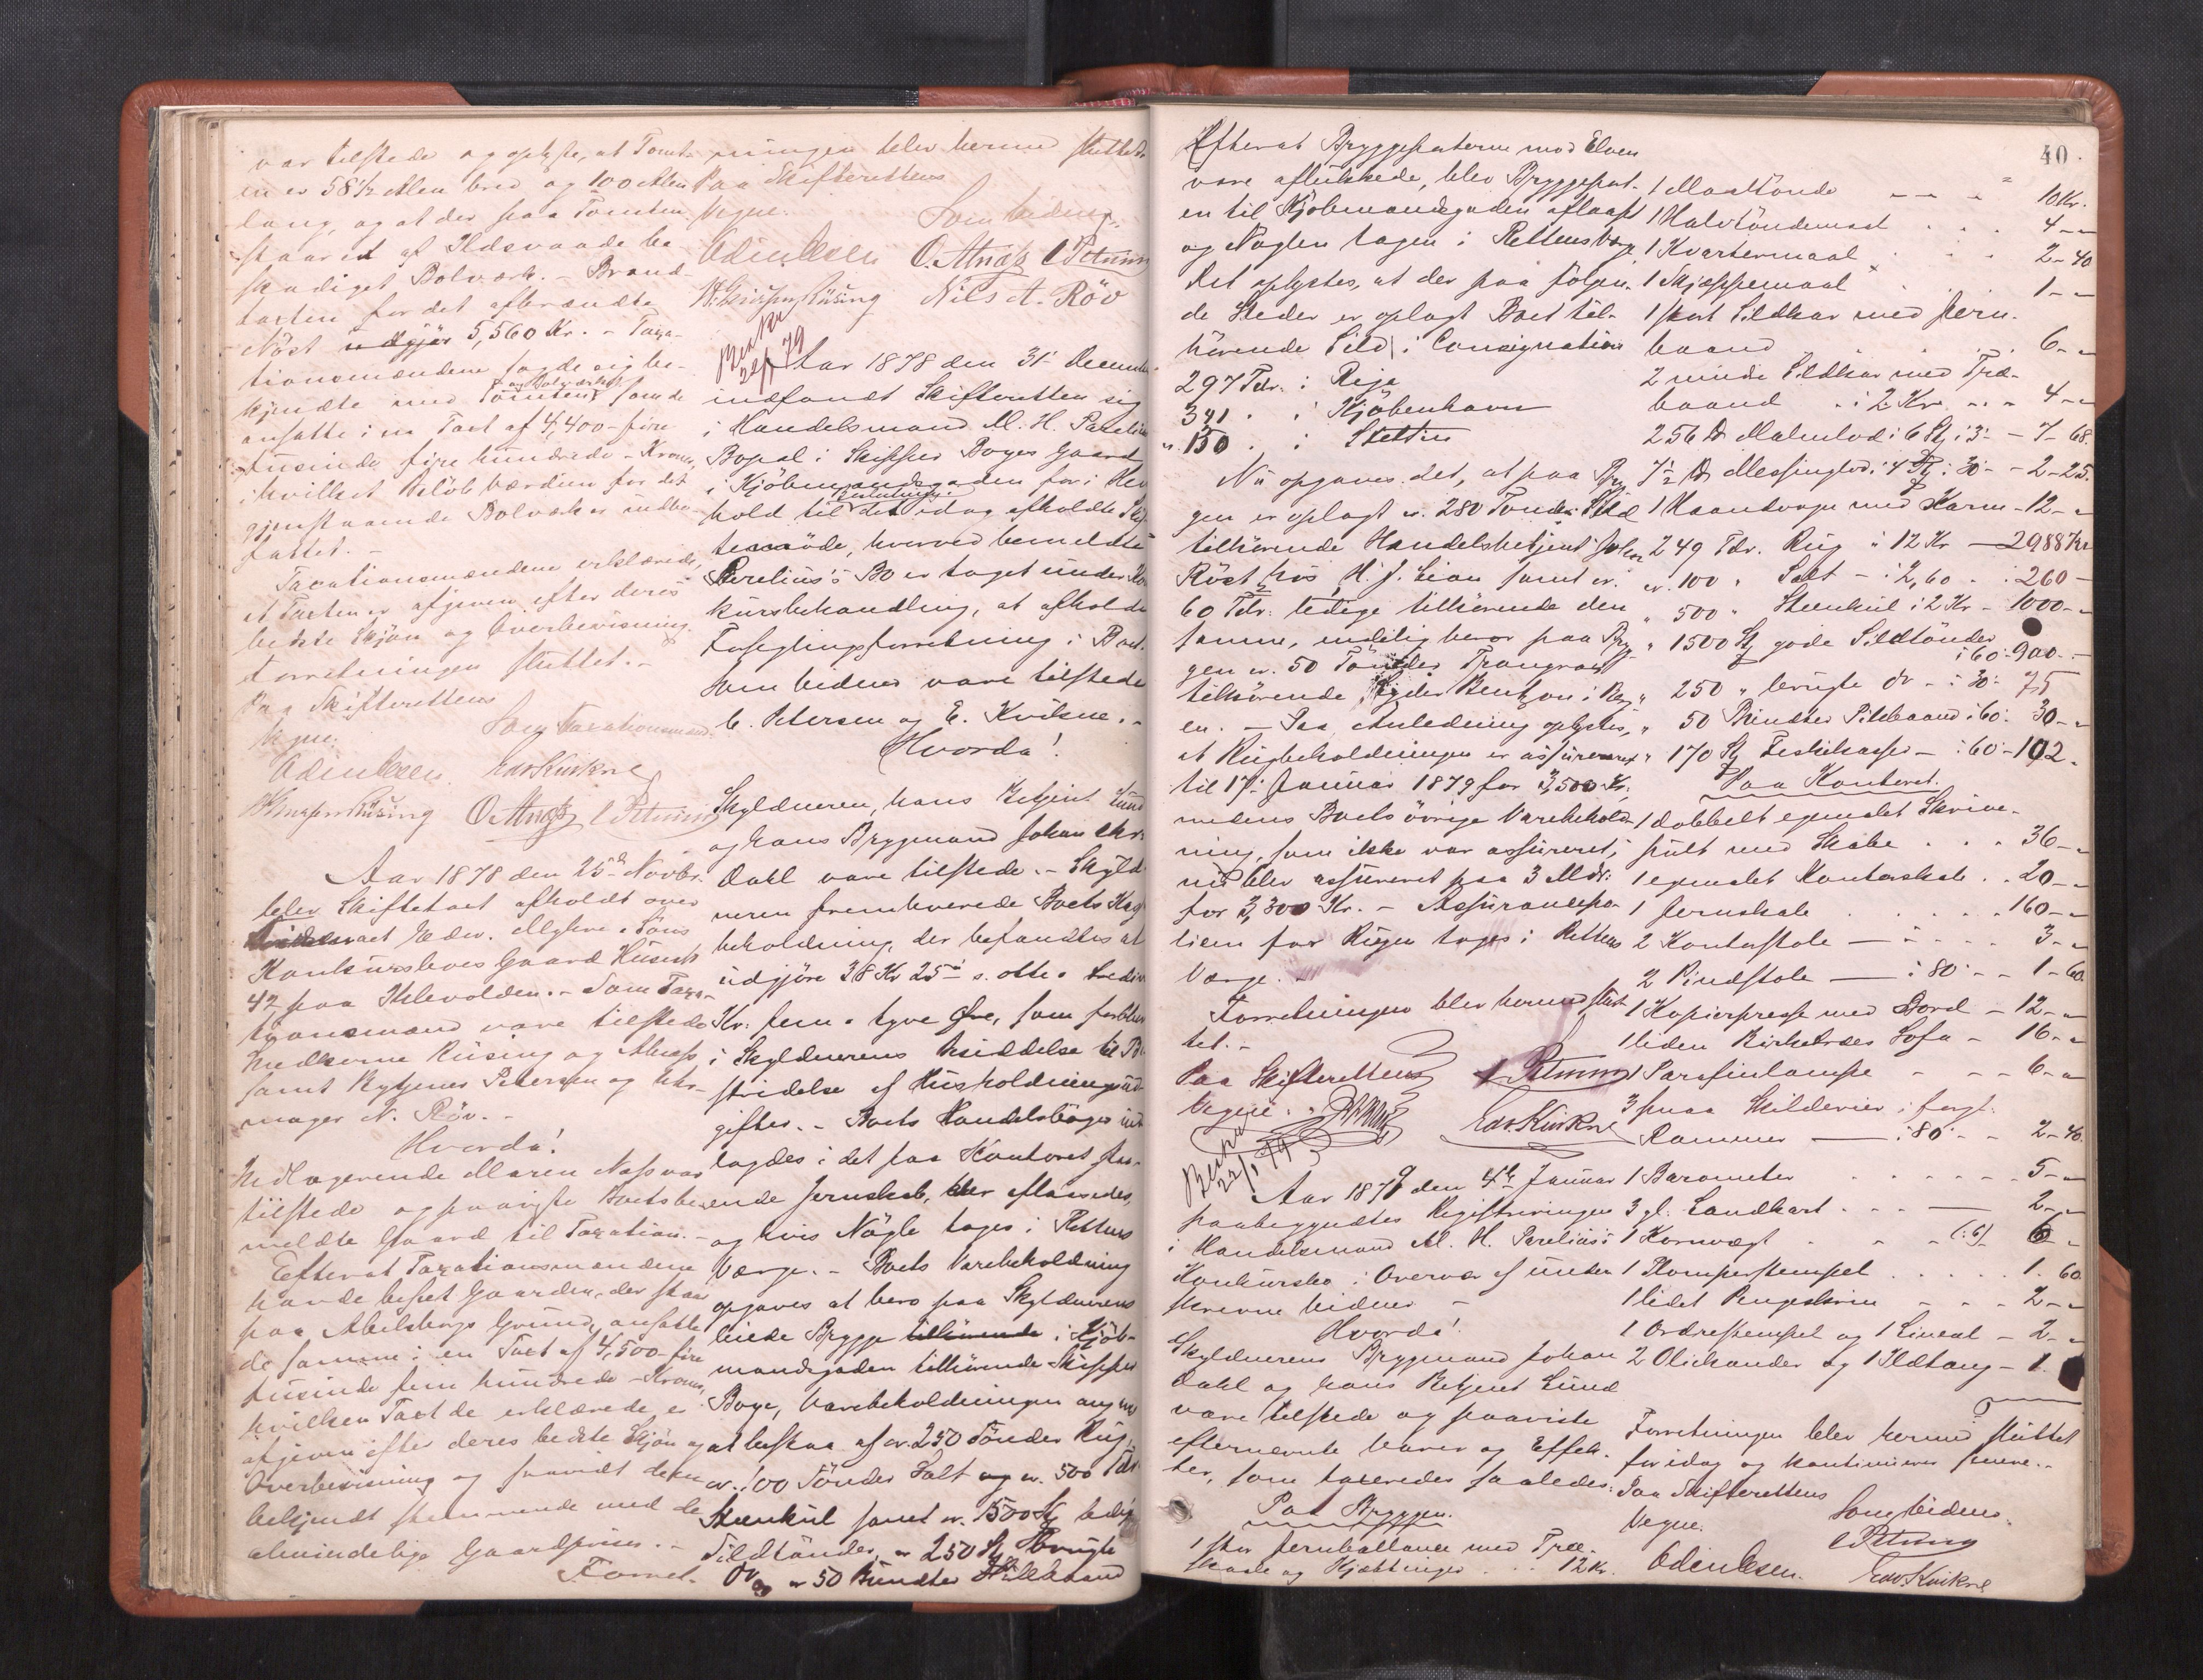 var tilstede og oplyste, at Tomt-
en er 58 1/2 Alen bred og 100 Alen
lang, og at der paa Tomten
staar et af Ildsvaade be-
skadiget Bolværk. - Brand-
taxten for det afbrændte
Nöst udgjör 5,560 Kr. - Taxa-
tionsmændene sagde sig be-
kjendte med Tomten og Bolværket, som de
ansatte i en Taxt af 4,400 - fire
tusinde fire hundrede - Kroner,
i hvilket Belöb Værdien for det
gjenstaaende Bolværk er indbe-
fattet. -
Taxationsmændene erklærede,
at Taxten er afgiven efter deres
bedste Skjön og Overbevisning.
Forretningen sluttet. -
Paa Skifterettens
Vegne.
Som Taxationsmænd.
Odin Olsen
Edv Kvikne
O. Alnæs C Petersen
Aar 1878 den 25de Novbr.
blev Skiftetaxt afholdt over
Konkursboes Gaard Husnr.
42 paa Ilevolden. - Som Taxa-
tionsmænd vare tilstede
Snedkerne Rüsing og Alnæs
samt Bytjener Petersen og Uhr-
mager N. Röv. -
Hvorda!
Vedkagerende Maren Næss var
tilstede og paaviste Boets be-
meldte Gaard til Taxation. -
Efterat Taxationsmændene
havde beseet Gaarden, der staar
paa Abelsborgs Grund, ansatte
de samme i en Taxt af 4,500 - fire
tusinde fem hundrede - Kroner,
hvilken Taxt de erklærede er
afgiven efter deres bedste Skjön og
Overbevisning og saavidt dem
bekjendt stemmende med de
almindelige Gaardpriser. -
Forret-
ningen blev hermed sluttet.
Paa Skifterettens
Vegne.
Som Vidner.
Odin Olsen O. Alnæs C Petersen
Rüsing Nils A. Röv
Aar 1878 den 31te December
indfandt Skifteretten sig
i Handelsmand M. H. Parelius
Bopæl i Skipper Boyes Gaard
i Kjöbmandsgaden for i Hen-
hold til Beslutning i det idag afholdte Skif-
temöde, hvorved bemeldte
Parelius's Bo er taget under Kon-
kursbehandling, at afholde
Forseglingsforretning i Boet.
Som Vidner vare tilstede
C. Petersen og E. Kvikne. -
Hvorda!
Skyldneren, hans Betjent Lund
og hans Bryggmand Johan Chr.
Dahl vare tilstede. - Skyld-
neren fremleverede Boets Kas-
beholdning, der befandtes at
udgjöre 38 Kr 25 ö s. otte og tredive
Kr. fem og tyve Öre, som forblev
i Skyldnerens Middelse til Be-
stridelse af Husholdningsud-
gifter. - Boets Handelsböger ind-
lagdes i det paa Kontoret staa-
ende Jernskab, der aflaasedes,
og hvis Nögle toges i Rettens
Værge. - Boets Varebeholdning
opgaves at bero paa Skyldnerens
leiede Brygge tilhörende i Kjöb-
mandsgaden tilhörende Skipper
Boye, Varebeholdningen angaves
at bestaa af cr. 250 Tönder Rug,
cr. 100 Tönder Salt og cr. 500 Tdr.
Steenkul samt cr. 1500 St. ledige
Sildtönder, cr 250 St. brugte
Do og cr 50 Bundter Pilebaand
40.
Efterat Bryggeporterne mod Elven
vare aflukkede, blev Bryggeport-
en til Kjöbmandsgaden aflaast
og Nöglen tagen i Rettens Værge.
Det oplystes, at der paa fölgen-
de Steder er oplagt Boet til-
hörende Sild i Consignation
297 Tdr. i Riga
341 " i Kjöbenhavn
cr. 150 " i Stettin
Nu opgaves det, at paa Bryg-
gen er oplagt cr. 280 Tönder Sild
tilhörende Handelsbetjent Johan
Röst hos H. J. Lian samt cr.
60 Tdr. ledige tilhörende den
samme, endelig beror paa Bryg-
gen cr. 50 Tönder Trangrav
tilhörende Bentzon i Berg-
en. - Paa Anledning oplystes,
at Rugbeholdningen er assureret
til 17. Januar 1879 for 3,500 Kr,
medens Boets övrige Varebehold-
ning, som ikke var assureret,
nu blev assureret paa 3 Mdr.
for 3,300 Kr. - Assurancepo-
licen for Rugen toges i Rettens
Værge. -
Forretningen blev hermed slut-
tet. -
Paa Skifterettens
Vegne.
C Petersen
Edv. Kvikne
Aar 1879 den 4de Januar
paabegyndtes Registreringen
i Handelsmand M. H. Parelius's
Konkursbo i Overvær af under-
skrevne Vidner -
Hvorda!
Skyldnerens Bryggmand Johan
Dahl og hans Betjent Lund
vare tilstede og paaviste
efternævnte Varer og Effek-
ter, som taxeredes saaledes:
Paa Bryggen.
1 stor Jernballance med Træ-
skaale og Kjættinger . . 12 Kr.
1 Maaltönde - - - 10 Kr.
1 Halvtöndemaal . . . 4 - "
1 Kvartermaal . . . 2 - 40
1 Skjæppemaal . 1 - "
1 stort Sildkar med Jern-
baand . . . 6 - "
2 mindre Sildkar med Træ-
baand . i 2 Kr . . . 4 - "
256 ℔ Malmlod i 6 St. i 3 - 7 - 68
7 1/2 ℔ Messinglod i 4 St. i 30 - 2 - 25.
1 Haandvogn med Karm - 12 - "
249 Tdr. Rug i 12 Kr - 2988 Kr
cr. 100 " Salt - i 2,60 . . 260 -
" 500 " Steenkul i 2 Kr - 1000 - "
" 1500 St. gode Sildtönder
i 60 - 900. -
" 250 " brugte do - i 30 - 75
" 50 Bundter Pilebaand i 60 . 30 - "
" 170 St. Fiskekasser - i 60 - 102.
Paa Kontoret.
1 dobbelt egemalet Skrive-
pult med Skabe . . . 36 - "
1 egemalet Kontorskab . . 20 - "
1 Jernskab . . . . . 160 - "
2 Kontorstole - . . . 3 - "
2 Pindstole - i 80 - - 1 - 60
1 Kopierpresse med Bord - 12 - "
1 liden Birketræes Sofa - 16 - "
1 Parafinlampe - - - 6 - "
3 smaa Skilderier i forgt.
Rammer - i 80 - - 2 - 40.
1 Barometer . . . . 5 - "
3 gl. Landkart . . . - 2 - "
1 Kornvægt . . . (: 6) 6 - "
1 Plomperstempel . . . . 1. 60
1 lidet Pengeskrin - - 2 - "
1 Ordrestempel og 1 Lineal - 2 - "
2 Oliekander og 1 Ildtang - 1.
Forretningen blev hermed sluttet
for idag og kontinueres senere. -
Paa Skifterettens
Vegne.
Som Vidner.
C Petersen
Odin Olsen. Edv. Kvikne